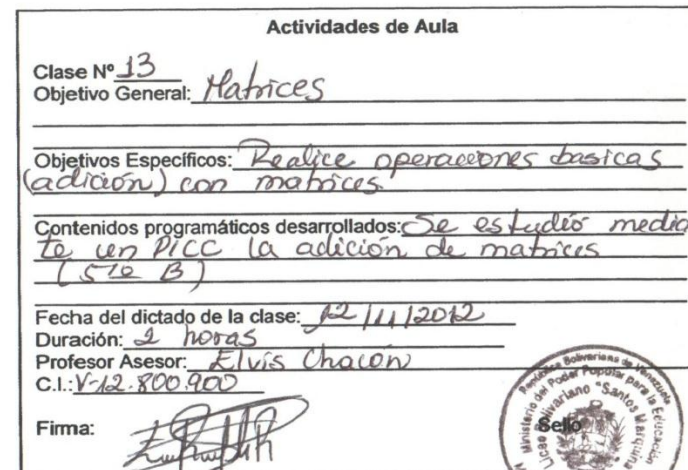 Actividades de Aula
Clase Nº 13
Objetivo General: Matrices
Objetivos Específicos: Realice operaciones basicas
(adición) con matrices
Contenidos programáticos desarrollados: Se estudió media
te un PICC la adición de matrices
(5to B)
Fecha del dictado de la clase: 12/11/2012
Duración: 2 horas
Profesor Asesor: Elvis Chacón
C.I.: V-12.800.900
Firma:
Sello
República Bolivariana de Venezuela
Ministerio del Poder Popular para la Educación
Liceo Bolivariano "Santos Marquin